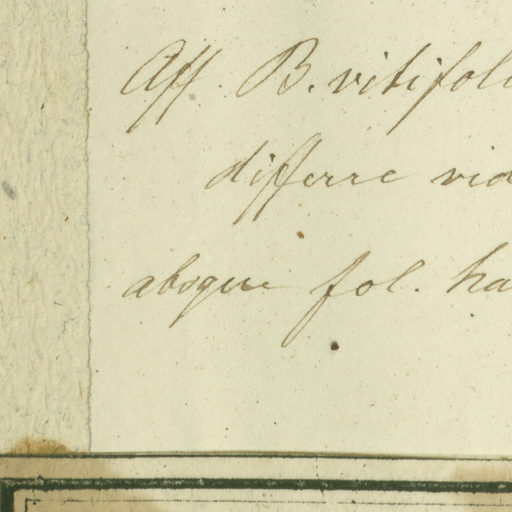 Aff. B. vitifoli
differre vid
absque fol. ha